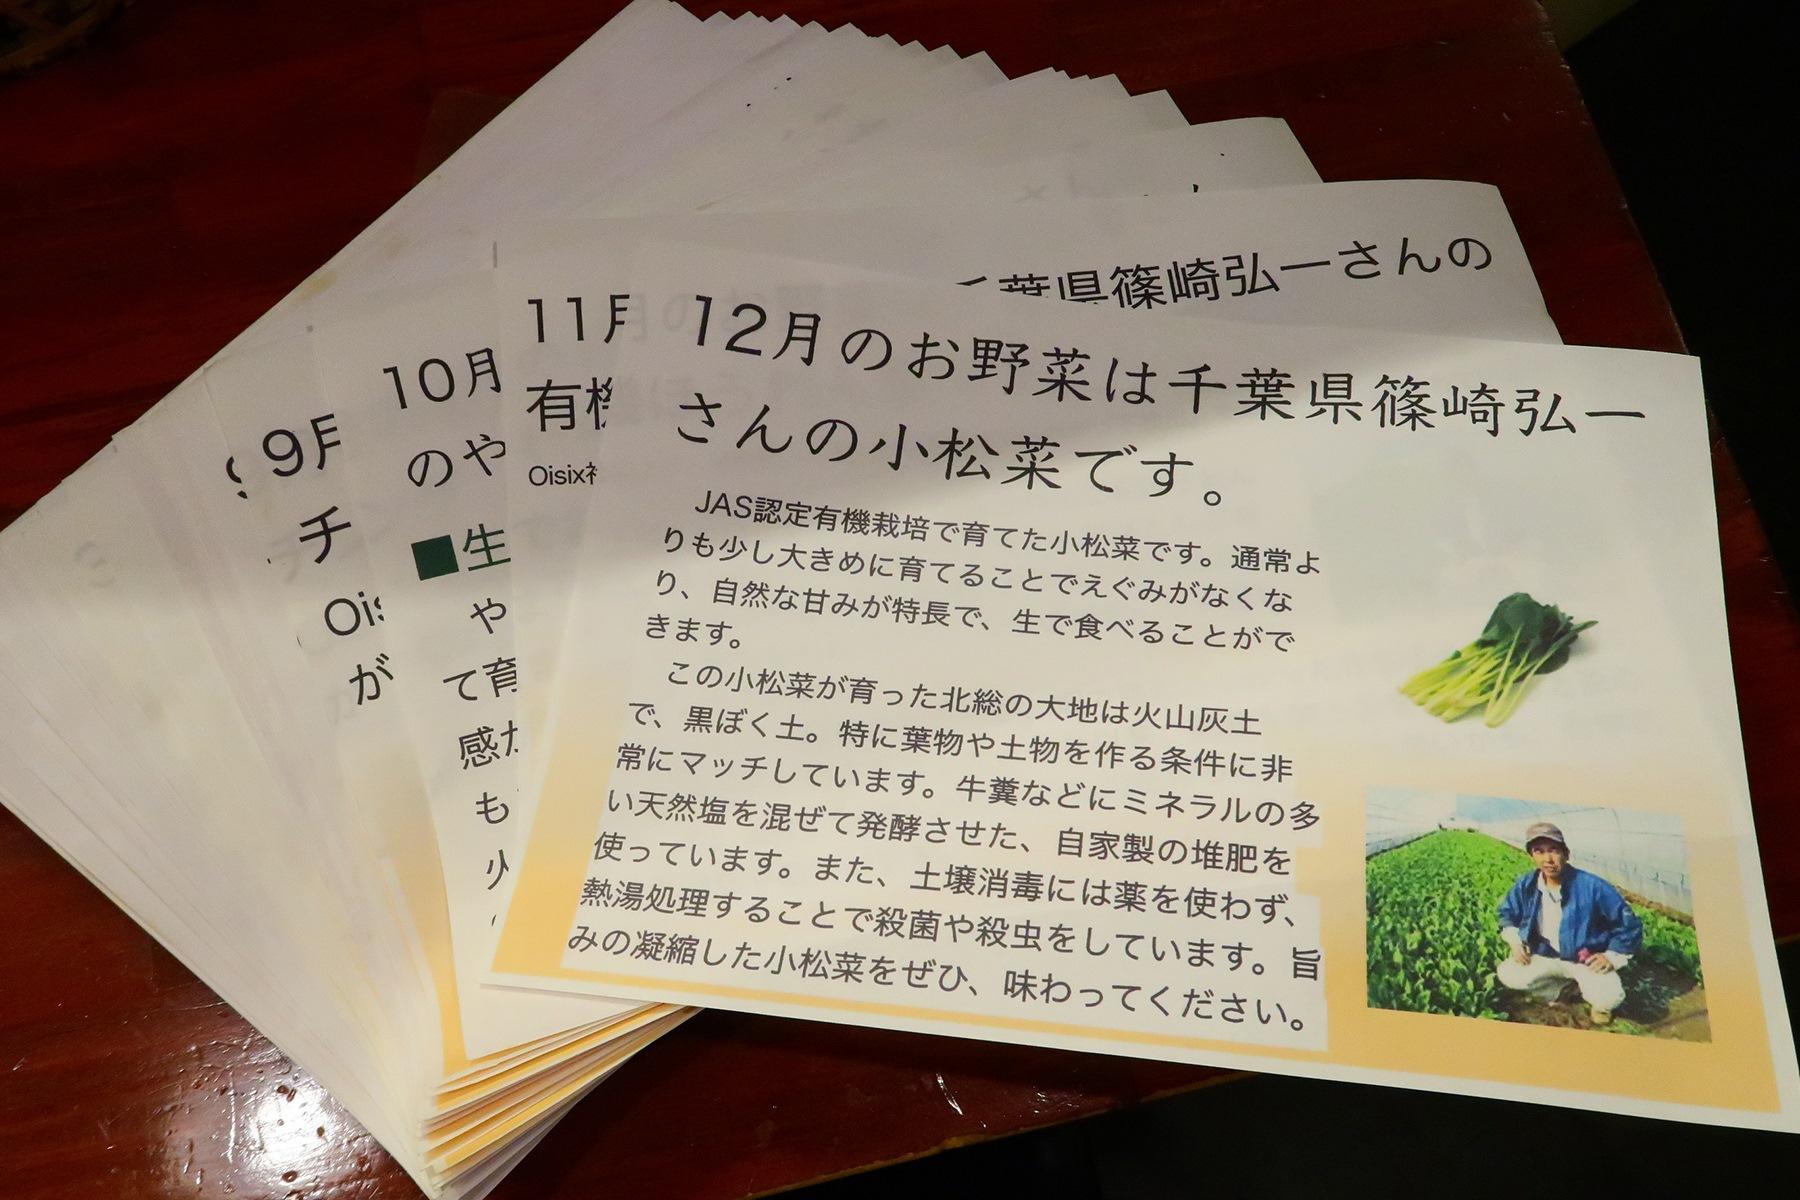 千葉県篠崎弘一さんの
12月のお野菜は千葉県篠崎弘一
さんの小松菜です。
JAS認定有機栽培で育てた小松菜です。通常よ
りも少し大きめに育てることでえぐみがなくな
り、自然な甘みが特長で、生で食べることがで
きます。
この小松菜が育った北総の大地は火山灰土
で、黒ぼく土。特に葉物や土物を作る条件に非
常にマッチしています。牛糞などにミネラルの多
い天然塩を混ぜて発酵させた、自家製の堆肥を
使っています。また、土壌消毒には薬を使わず、
熱湯処理することで殺菌や殺虫をしています。旨
みの凝縮した小松菜をぜひ、味わってください。
11月
有機
Oisix
10月
のや
■生
や
て育
感
も
火
9月
チ
Ois
が